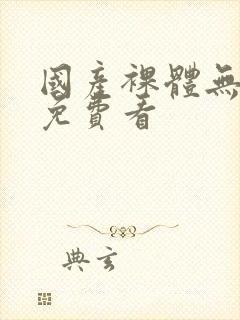 國產裸體無
免費看
典玄